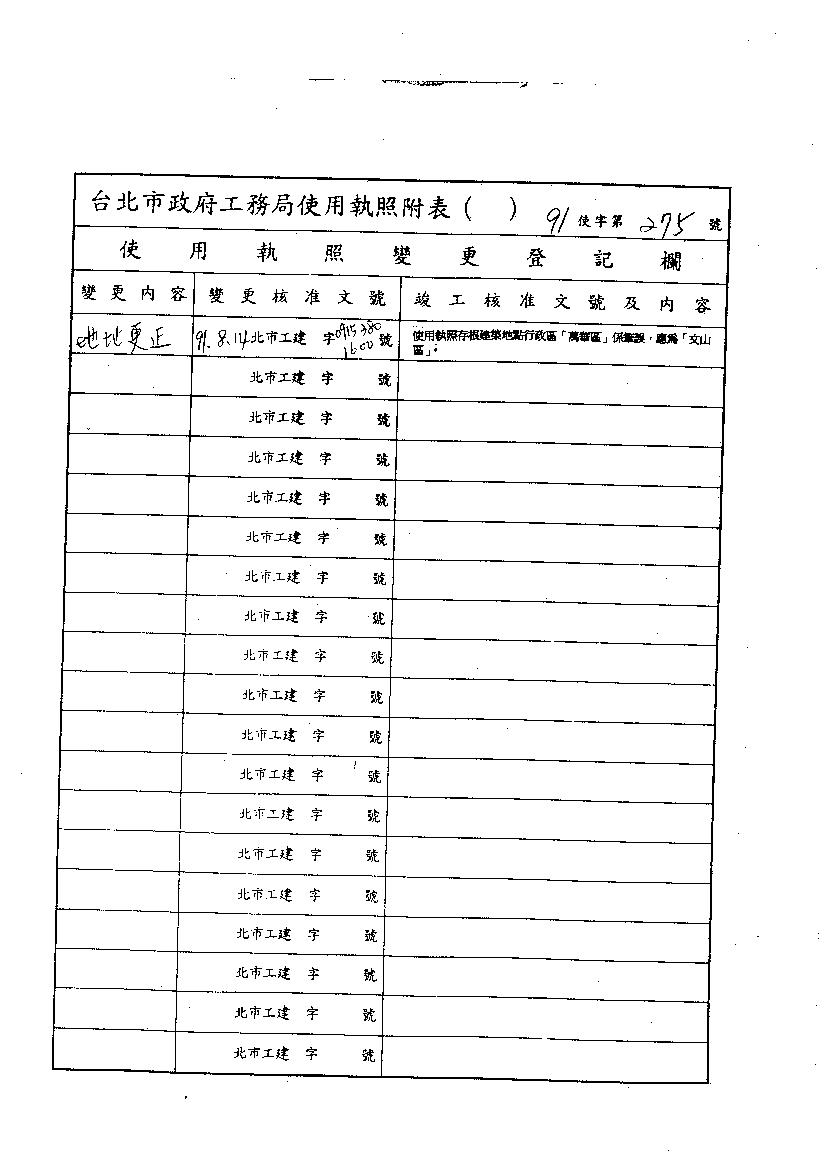 台北市政府工務局使用執照附表（　） 91 使字第 275 號
使用執照變更登記欄
變更內容 變更核准文號 竣工核准文號及內容
地址更正 91.8.14 北市工建 字 0915380 號 使用執照存根建築地點行政區「萬華區」係筆誤，應為「文山
1600 區」。
北市工建 字 號
北市工建 字 號
北市工建 字 號
北市工建 字 號
北市工建 字 號
北市工建 字 號
北市工建 字 號
北市工建 字 號
北市工建 字 號
北市工建 字 號
北市工建 字 號
北市工建 字 號
北市工建 字 號
北市工建 字 號
北市工建 字 號
北市工建 字 號
北市工建 字 號
北市工建 字 號